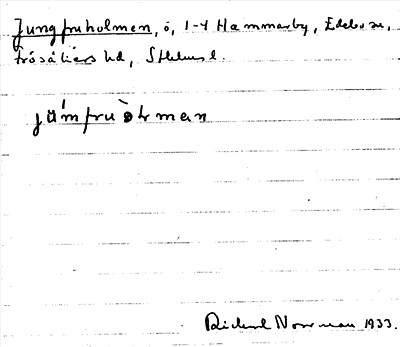 Jungfruholmen, ö, 1-4 Hammarby, Edebo sn,
Frösåkers hd, Sthlms l.
jåmfruòrman
Rickard Norrman 1933.